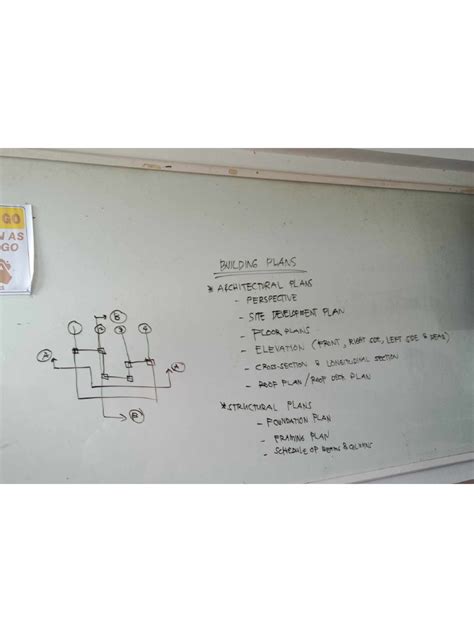 GO
N AS
GO
BUILDING PLANS
* ARCHITECTURAL PLANS
- PERSPECTIVE
- SITE DEVELOPMENT PLAN
- FLOOR PLANS
- ELEVATION (FRONT, RIGHT SIDE, LEFT SIDE & REAR)
- CROSS-SECTION & LONGITUDINAL SECTION
- ROOF PLAN / ROOF DECK PLAN
* STRUCTURAL PLANS
- FOUNDATION PLAN
- FRAMING PLAN
- SCHEDULE OF BEAMS & COLUMNS
B
1 2 3 4
A A
B